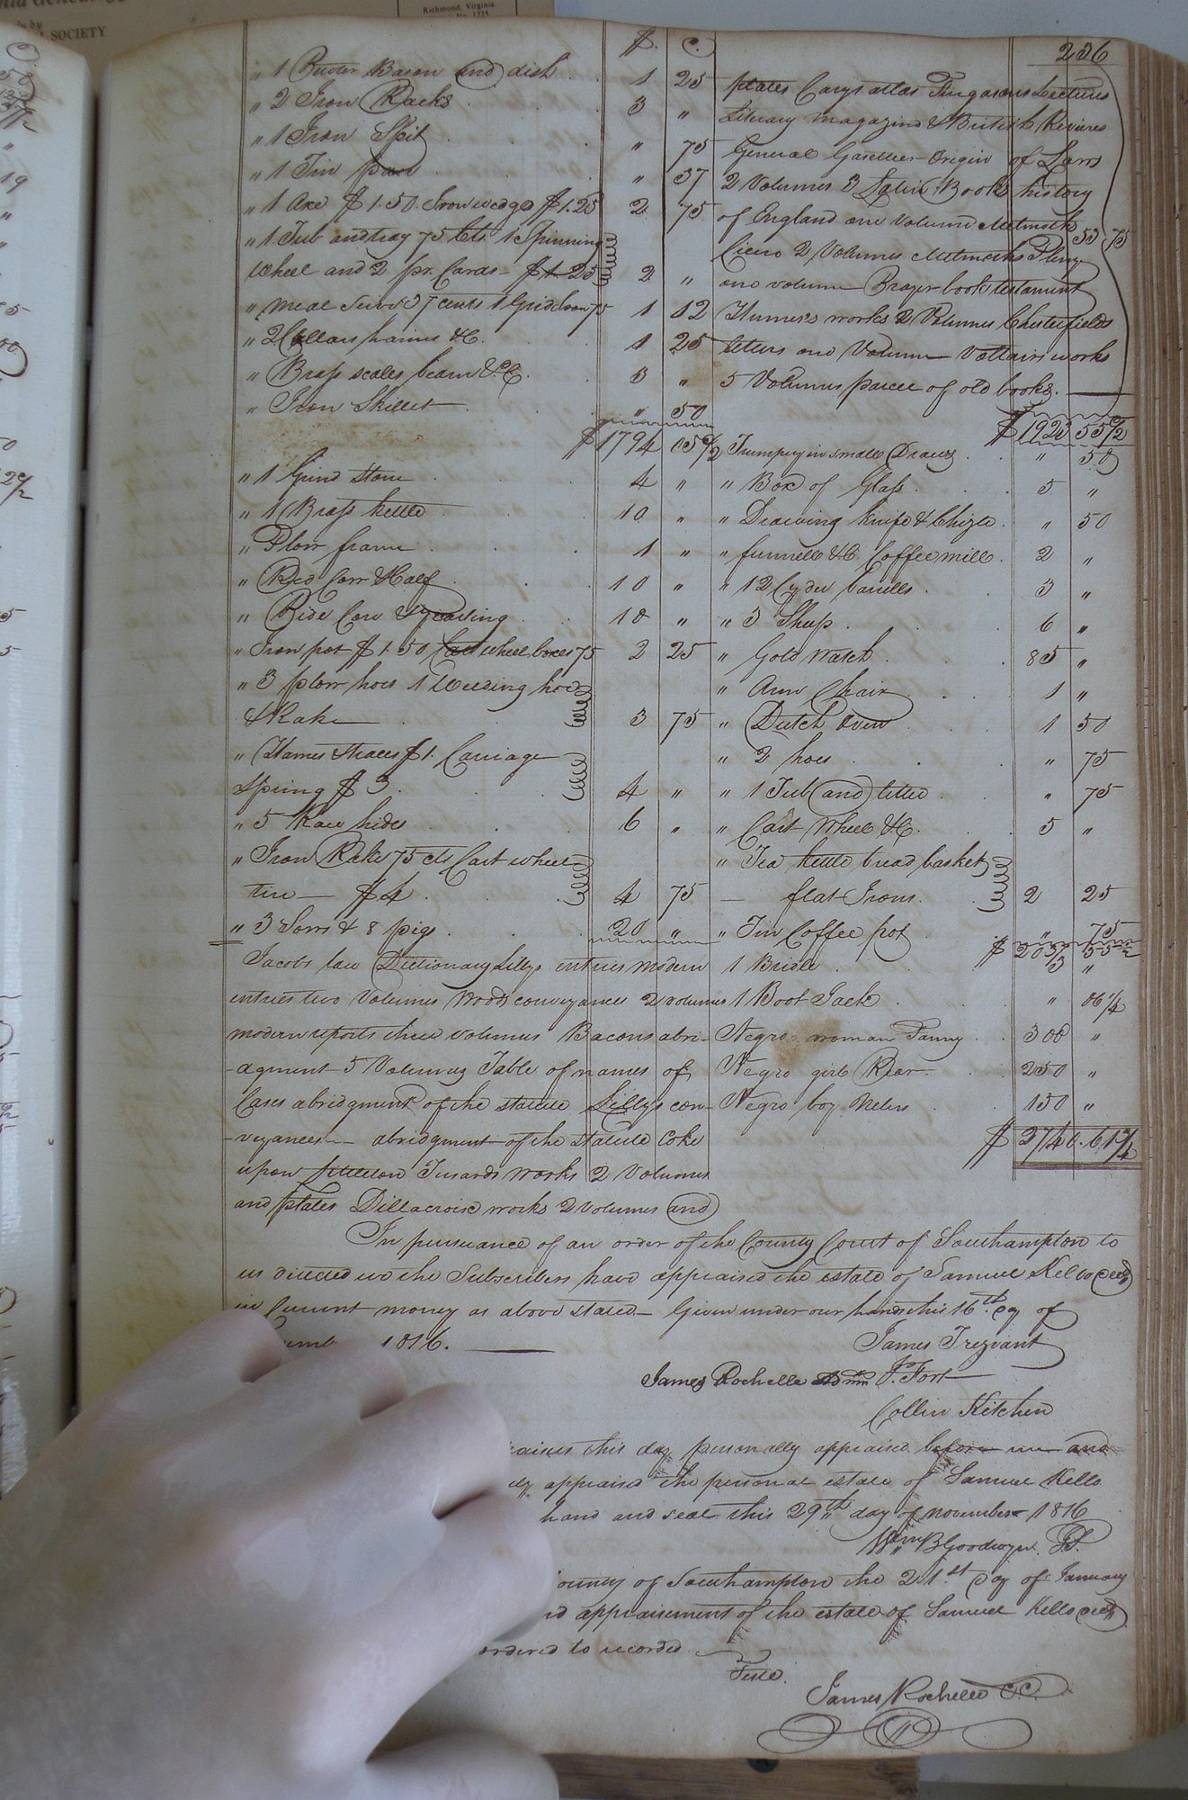 SOCIETY
Richmond, Virginia
236
$ C.
" 1 Pewter Bason and dish 1 25
" 2 Iron Racks 3 "
" 1 Iron Spit " 75
" 1 Tin pan " 37
" 1 Axe $1.50. Iron wedge $1.25 2 75
" 1 Tub and tray 75 Cts 1 Spinning
Wheel and 2 pr. Cards $1.25 2 "
" meal Sieve 37 cents 1 Gridiron 75 1 12
" 2 Collars haims &C. 1 25
" Brass scales beam &C. 3 "
" Iron Skillet " 50
$ 1794 05 1/2
" 1 Grind stone 4 "
" 1 Brass kettle 10 "
" Plow frame 1 "
" Red Cow & Calf 10 "
" Pide Cow & yearling 10 "
" Iron pot $1.50 Cart wheel boxes 75 2 25
" 3 plow hoes 1 Weeding hoe
& Rake 3 75
" Hames traces $1. Carriage
Spring $3 4 "
" 5 Raw hides 6 "
" Iron Rake 75 cts Cart wheel
tire — $4 4 75
" 3 Sows & 8 pigs 20 "
Jacobs law Dictionary Lillys entries modern
entries two Volumes Woods conveyances 2 volumes
modern reports three volumes Bacons abri-
-dgment 5 Volumes Table of names of
Cases abridgment of the statute Lillys con-
-veyances — abridgment of the statute Coke
upon Littleton works 2 Volumes
and plates works 2 volumes and
plates Carys atlas Furgasons Lectures
Literary magazine & British Review
General Gazetteer Origin of Laws
2 Volumes 3 Latin Books history
of England one Volume Melmoth 53 75
Cicero 2 Volumes Melmoths Pliny
one volume Prayer book testament
Humes works 2 Volumes Chesterfields
letters one Volume Voltairs works
5 Volumes parcel of old books. —
$ 1923 55 1/2
Trumpery in small Draws " 50
" Box of Glass 5 "
" Drawing knife & Chizle " 50
" funnell &C Coffee mill 2 "
" 12 Cyder barrells 3 "
" 3 Sheep 6 "
" Gold Watch 85 "
" Arm Chair 1 "
" Dutch Oven 1 50
" 2 hoes " 75
" 1 Tub and " 75
" Cart Wheel &C. 5 "
" Tea kettle bread basket
— flat Irons 2 25
" Tin Coffee pot " 75
1 Bridle 3 "
1 Boot Jack " 06 1/4
Negro woman Fanny 300 "
Negro girl 250 "
Negro boy 150 "
$ 2740. 61 3/4
In pursuance of an order of the County Court of Southampton to
us directed we the Subscribers have appraised the estate of Samuel Kello decd
in Current money as above stated — Given under our hands this 16th day of
1816. —
James Trezvant
James Rochelle Adm J. Fort
Collin Kitchen
this day personally appeared before me and
appraised the personal estate of Samuel Kello
hand and seal this 29th day of november 1816
Wm B Goodwyn
ounty of Southampton the 21st day of January
appraisement of the estate of Samuel Kello decd
ordered to recorded
Teste.
James Rochelle CC